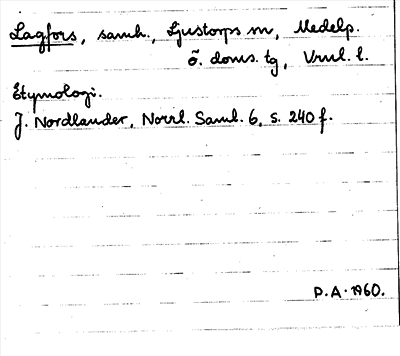 Lagfors, samh., Ljustorps sn, Medelp.
ö. doms. tg, Vnrl. l.
Etymologi.
J. Nordlander, Norrl. Saml. 6, s. 240 f.
P.A. 1960.